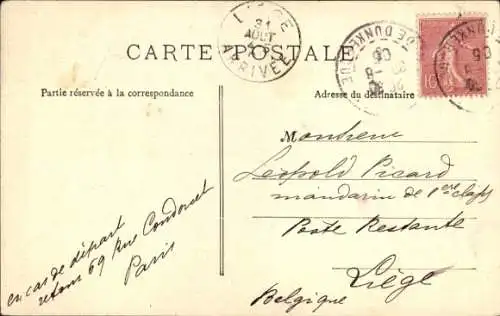 LIEGE
31
AOUT
ARRIVÉE
DE DUNKERQUE
CARTE POSTALE
10
Partie réservée à la correspondance
Adresse du destinataire
Monsieur
Leopold Picard
mandarin de 1ere classe
Poste Restante
Liège
Belgique
en cas de départ
retour 69 rue Condorcet
Paris